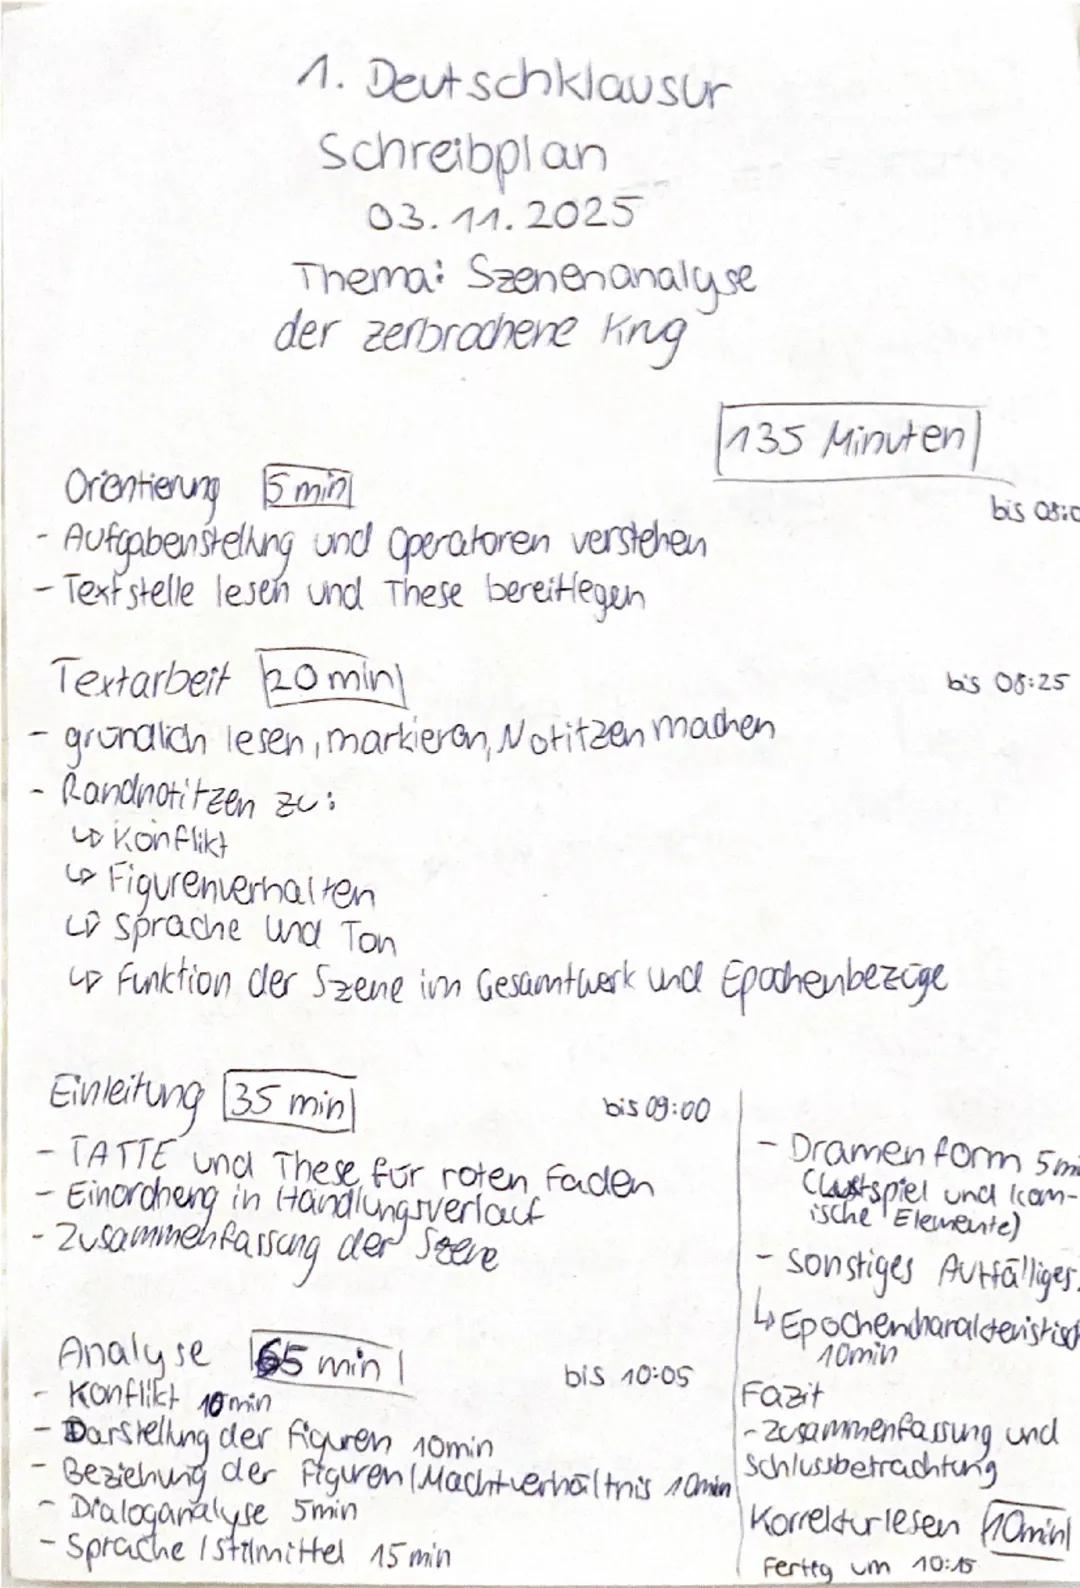 1. Deutschklausur
Schreibplan
03.11.2025
Thema: Szenenanalyse
der zerbrochene Krug
135 Minuten
Orientierung 5 min
bis 08:0
- Aufgabenstellung und Operatoren verstehen
- Textstelle lesen und These bereitlegen
Textarbeit 20 min
bis 08:25
- gründlich lesen, markieren, Notitzen machen
- Randnotitzen zu:
↳ Konflikt
↳ Figurenverhalten
↳ Sprache und Ton
↳ Funktion der Szene im Gesamtwerk und Epochenbezüge
Einleitung 35 min
bis 09:00
- TATTE und These für roten Faden
- Einordneng in Handlungsverlauf
- Zusammenfassung der Szene
Analyse 65 min
bis 10:05
- Konflikt 10min
- Darstellung der Figuren 10min
- Beziehung der Figuren/Machtverhältnis 10min
- Dialoganalyse 5min
- Sprache / Stilmittel 15 min
- Dramenform 5mi
(Lustspiel und kom-
ische Elemente)
- sonstiges Auffälliges
↳ Epochencharakteristisch
10min
Fazit
- Zusammenfassung und
Schlussbetrachtung
Korrekturlesen 10min
Fertig um 10:15